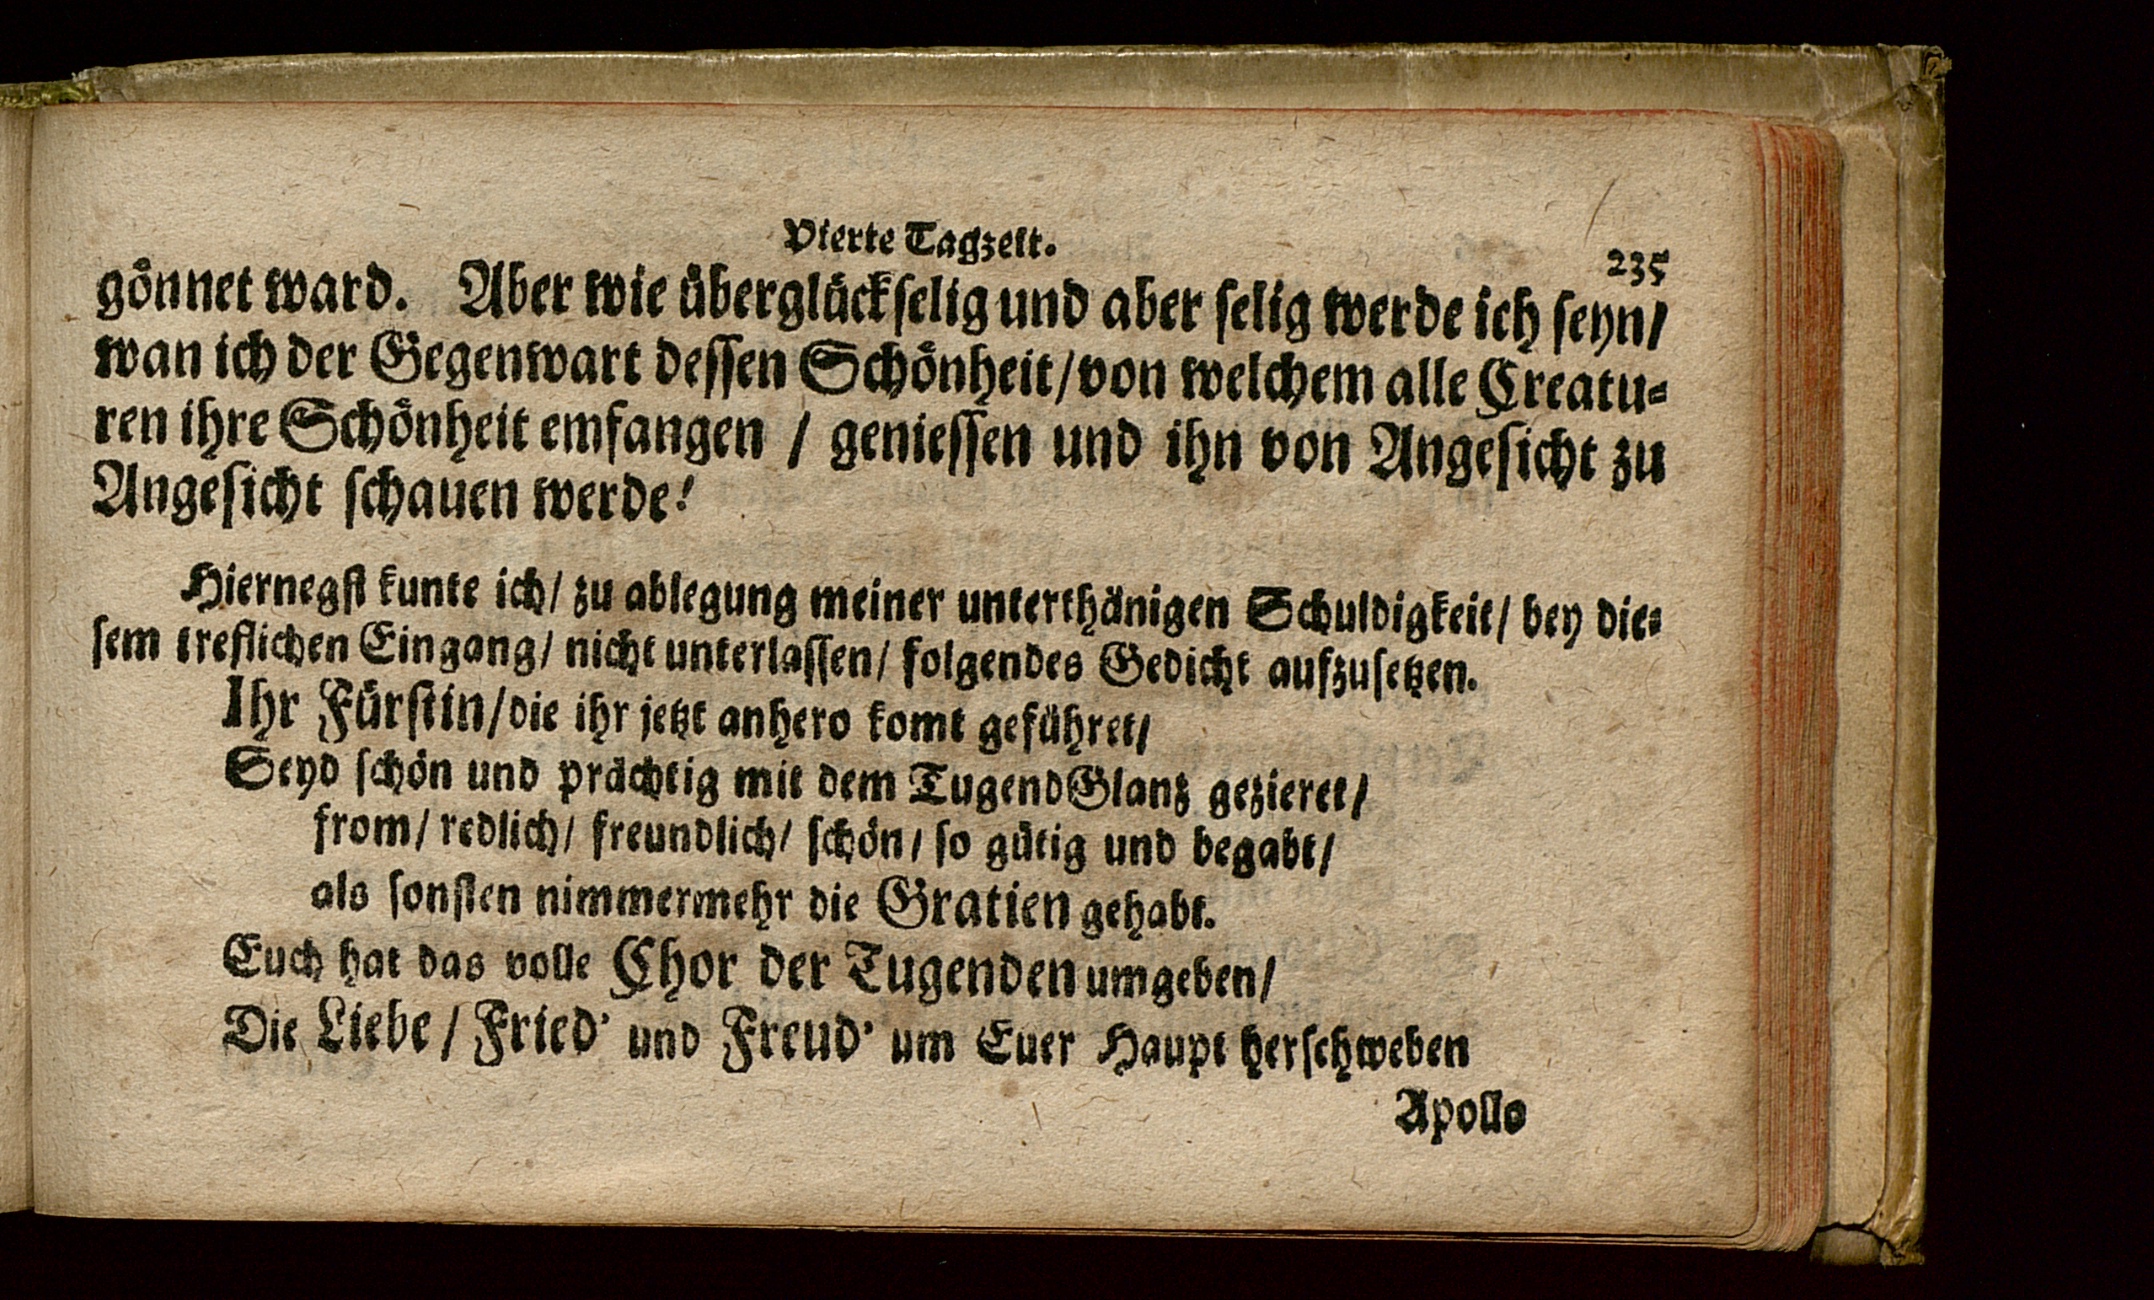 Vierte Tagzeit.
235
gönnet ward. Aber wie überglückselig und aber selig werde ich seyn/
wan ich der Gegenwart dessen Schönheit/von welchem alle Creatu-
ren ihre Schönheit emfangen / geniessen und ihn von Angesicht zu
Angesicht schauen werde!
Hiernegst kunte ich/ zu ablegung meiner unterthänigen Schuldigkeit/ bey die-
sem treflichen Eingang/ nicht unterlassen/ folgendes Gedicht aufzusetzen.
Ihr Fürstin/die ihr jetzt anhero komt geführet/
Seyd schön und prächtig mit dem TugendGlantz gezieret/
from/ redlich/ freundlich/ schön/ so gütig und begabt/
als sonsten nimmermehr die Gratien gehabt.
Euch hat das volle Chor der Tugenden umgeben/
Die Liebe/ Fried' und Freud' um Euer Haupt herschweben
Apollo